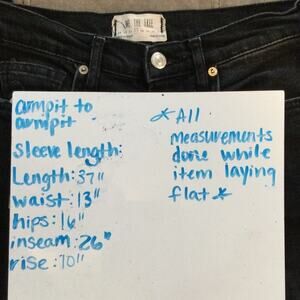 WE THE FREE
armpit to
armpit
sleeve length:
Length: 37"
waist: 13"
hips: 16"
inseam: 26"
rise: 10"
*All
measurements
done while
item laying
flat*